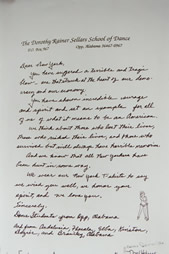 The Dorothy Rainer Sellars School of Dance
P.O. Box 567 Opp, Alabama 36467-0567
Dear New York,
You have suffered a terrible and tragic
blow, one that struck at the heart of our democracy
and our economy.
You have shown incredible courage
and spirit and set an example for all
of us of what it means to be an American.
We think about those who lost their lives,
those who risked their lives, and those who
survived but will always have horrible memories.
And we know that all New Yorkers have
been hurt in some way.
We wear our New York T-shirts to say
we wish you well, we honor your
spirit and we love you.
Sincerely,
Some Students from Opp, Alabama
And from Andalusia,
and Brantley, Alabama